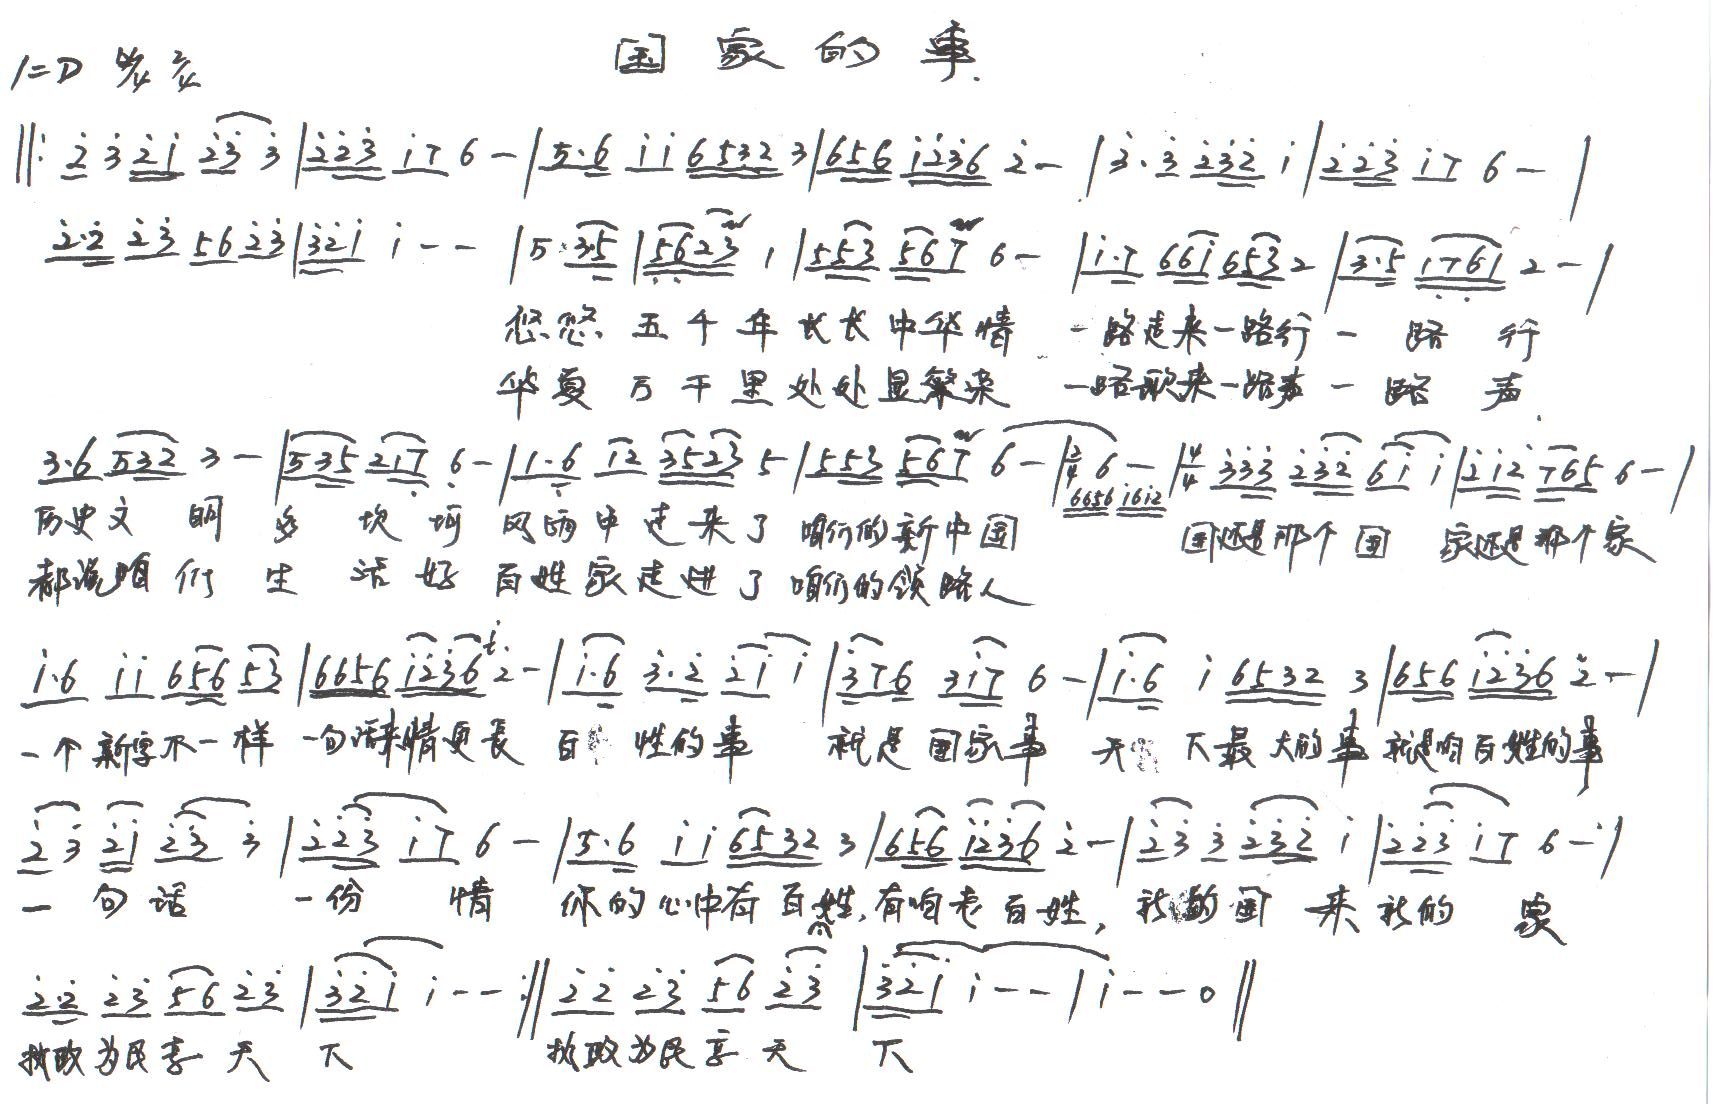 国家的事
1=D 4/4 2/4
‖: 2̇ 3̇ 2̇1̇ 2̇3̇ 3̇ | 2̇2̇3̇ 1̇7 6 – | 5·6 1̇1̇ 6532 3 | 656 1̇2̇3̇6 2̇ – | 3̇·3̇ 2̇3̇2̇ 1̇ | 2̇2̇3̇ 1̇7 6 – |
2̇·2̇ 2̇3̇ 56 2̇3̇ | 3̇2̇1̇ 1̇ – – | 5 3·5 | 5̣6̣23 1 | 553 567 6 – | 1̇·7 661̇ 653 2 | 3·5 17̣6̣1 2 – |
悠悠五千年长长中华情 一路走来一路行一路行
华夏万千里处处显繁荣 一路歌来一路声一路声
3·6 532 3 – | 535 217̣ 6̣ – | 1·6̣ 12 3523 5 | 553 567 6 – | 2/4 6 – | 4/4 3̇3̇3̇ 2̇3̇2̇ 61̇ 1̇ | 2̇1̇2̇ 765 6 – |
6656 1̇61̇2̇
历史文明多坎坷风雨中走来了咱们的新中国 国还是那个国 家还是那个家
都说咱们生活好百姓家走进了咱们的领路人
1̇·6 1̇1̇ 656 53 | 6656 1̇2̇3̇6 2̇ – | 1̇·6 3̇·2̇ 2̇1̇ 1̇ | 3̇76 31̇7 6 – | 1̇·6 1̇ 6532 3 | 656 1̇2̇36 2̇ – |
一个新字不一样 一句话来情更长 百姓的事 就是国家事 天下最大的事就是咱百姓的事
2̇3̇ 2̇1̇ 2̇3̇ 3̇ | 2̇2̇3̇ 1̇7 6 – | 5·6 1̇1̇ 6532 3 | 656 1̇2̇36 2̇ – | 2̇3̇ 3̇ 2̇3̇2̇ 1̇ | 2̇2̇3̇ 1̇7 6 – |
一句话 一份情 你的心中有百姓,有咱老百姓, 我的国来我的家
2̇·2̇ 2̇3̇ 56 2̇3̇ | 3̇2̇1̇ 1̇ – – :‖ 2̇2̇ 2̇3̇ 56 2̇3̇ | 3̇2̇1̇ 1̇ – – | 1̇ – – 0 ‖
执政为民享天下 执政为民享天下